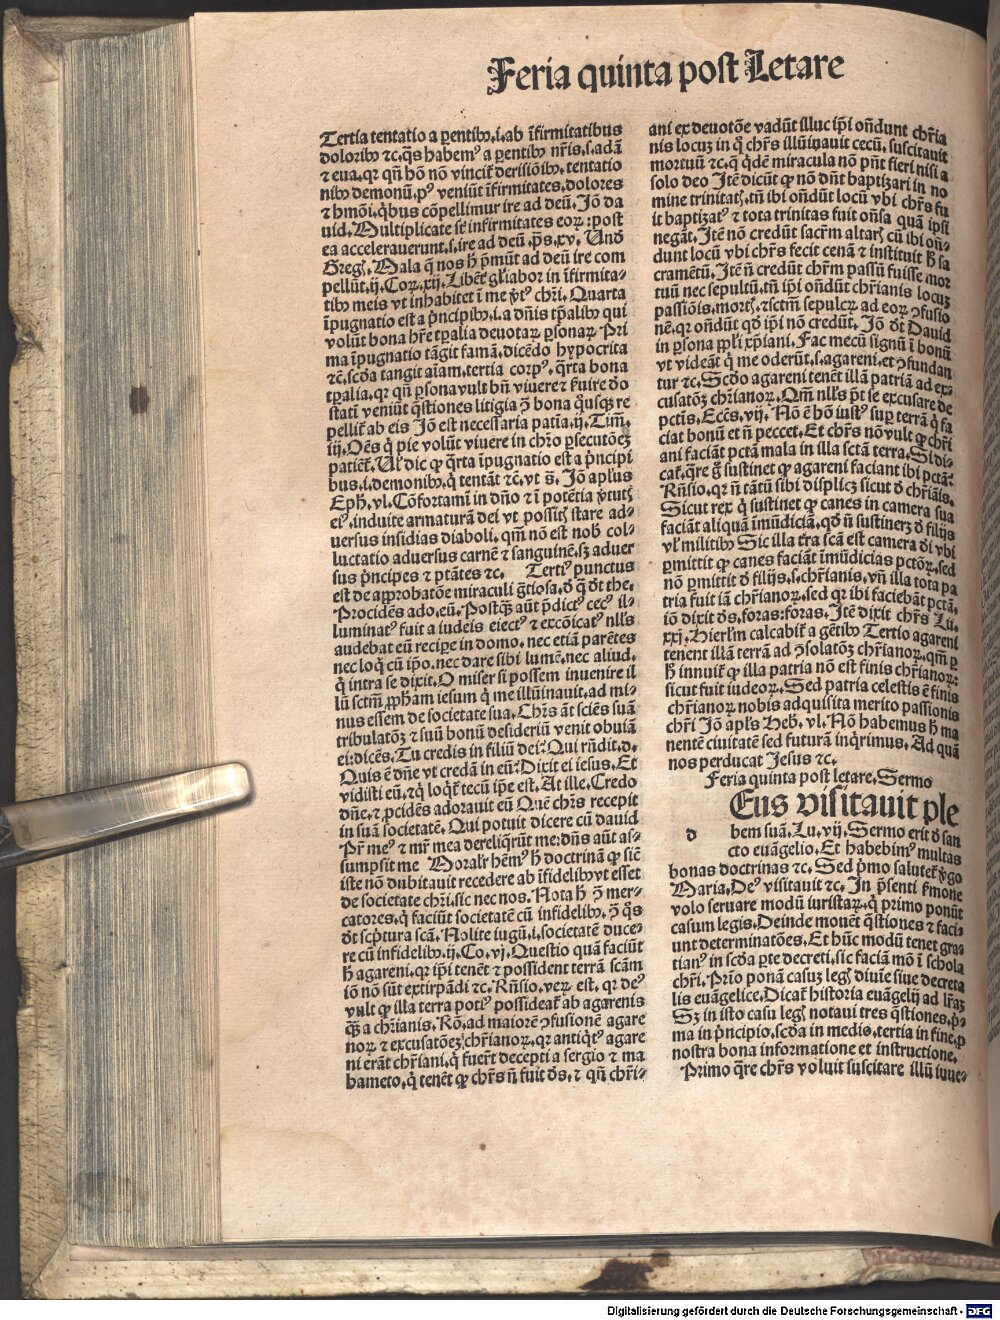 Feria quinta post Letare
Tertia tentatio a pentibꝰ.i.ab īfirmitatibus
doloribꝰ ⁊c.q̄s habemꝰ a pentibꝰ nr̄is.ſ.adā
⁊ eua.qr qn̄ hō nō vincit᷑ deriſiōibꝰ.tentatio
nibꝰ demonū.pꝰ veniūt īfirmitates.dolores
⁊ hmōi.q̇bus cōpellimur ire ad deū. Jō da
uid.Multiplicate ſt̄ infirmitates eoꝝ:poſt
ea accelerauerunt.i.ire ad deū.p̄s.xv. Unđ
Greg᷒.Mala q̄ nos h̄ p̄mūt ad deū ire com
pellūt.ij.Coꝝ.xij.Libēt᷑ gl̄iabor in īfirmita⸗
tibꝰ meis vt inhabitet ī me v̓tꝰ chr̄i. Quarta
īpugnatio eſt a p̓ncipibꝰ.i.a dn̄is tp̄alibꝰ qui
volūt bona hr̄e tp̄alia deuotaꝝ ꝑſonaꝝ. Pri
ma īpugnatio tāgit famā.dicēdo hypocrita
⁊c̄.ſcđa tangit aīam.tertia corpꝰ.q̄rta bona
tp̄alia.qr qn̄ ꝑſona vult bn̄ viuere ⁊ ẜuire đo
ſtati veniūt q̄ſtiones litigia ꝓ bona quſqꝫ re
pellit᷑ ab eis Jō eſt neceſſaria patiā.ij.Tim̄.
iij.Oēs q̇ pie volūt viuere in chr̄o ꝑſecutōeꝫ
patiēt᷑.Ul̓ dic ꝙ q̄rta īpugnatio eſt a p̓ncipi
bus.i.demonibꝰ.q̇ tentāt ⁊c̄.vt s̄. Jō apl̓us
Eph̄.vi.Cōfortamī in dn̄o ⁊ ī potētia v̓tut᷒
eiꝰ.induite armaturā dei vt poſſit᷒ ſtare ad⸗
uersus inſidias diaboli.qm̄ nō eſt nob̄ col⸗
luctatio aduerſus carnē ⁊ ſanguinē.ſꝫ aduer
ſus p̓ncipes ⁊ ptātes ⁊c. Tertiꝰ punctus
eſt de approbatōe miraculi g̅tioſa.đ q̄ đt the.
Procidēs ado.eū.Poſtq̄ꝫ aūt p̄dictꝰ cecꝰ il⸗
luminatꝰ fuit a iudeis eiectꝰ ⁊ excōicatꝰ nll̓s
audebat eū recipe in domo.nec etiā parētes
nec loq̇ cū ip̄o.nec dare ſibi lumē.nec aliud.
q̇ intra ſe dixit.O miſer ſi poſſem inuenire il
lū ſctm̄ ꝓph̄am ieſum q̇ me illūinauit.ad mi⸗
nus eſſem de ſocietate ſua.Chr̄s āt ſciēs ſuā
tribulatōꝫ ⁊ ſuū bonū deſideriū venit obuiā
ei:dicēs.Tu credis in filiū dei? Qui rn̄dit.d.
Quis ē dn̄e vt credā in eū? Dixit ei ieſus.Et
vidiſti eū.⁊q̇ loq̇t᷑ tecū ip̄e eſt.At ille.Credo
dn̄e.⁊ ꝓcidēs adorauit eū Quē chr̄s recepit
in ſuā ſocietatē.Qui potuit dicere cū dauid
Pr̄ meꝰ ⁊ mr̄ mea dereliq̄rūt me:dn̄s aūt aſ⸗
ſumpſit me Moralr̄ hēmꝰ h̄ doctrinā ꝙ ſic̄
iſte nō dubitauit recedere ab īfidelibꝰ vt eſſet
de ſocietate chr̄i.ſic nec nos.Nota h̄ ꝓ mer⸗
catores.q̇ faciūt ſocietatē cū infidelibꝰ.ꝓ q̄s
đt ſcp̄tura ſcā.Nolite iugū.i.ſocietatē duce⸗
re cū infidelibꝰ.ij.Co.vj.Queſtio quā faciūt
h̄ agareni.qr ip̄i tenēt ⁊ poſſident terrā ſcām
iō nō ſūt extirpādi ⁊c.Rn̄ſio.veꝝ eſt.qr deꝰ
vult ꝙ illa terra potiꝰ poſſideat᷑ ab agarenis
q̄ꝫ a chr̄ianis.Rō.ad maiorē ↄfuſionē agare
noꝝ ⁊ excuſatōeꝫ chr̄ianoꝝ.qr antiq̇tꝰ agare
ni erāt chr̄iani.q̇ fuer̄t decepti a ſergio ⁊ ma
hameto.q̇ tenēt ꝙ chr̄s n̄ fuit đs.⁊ qn̄ chr̄i⸗
ani ex deuotōe vadūt illuc ip̄i on̄dunt chr̄ia
nis locuꝫ in q̊ chr̄s illūinauit cecū.ſuſcitauit
mortuū ⁊c.q̄ q̇dē miracula nō pn̄t fieri niſi a
ſolo deo Jtē dicūt ꝙ nō đn̄t baptiꝫari in no
mine trinitat᷒.tn̄ ibi on̄dūt locū vbi chr̄s fu
it baptiꝫatꝰ ⁊ tota trinitas fuit on̄ſa quā ipſi
negāt.Jtē nō credūt ſacr̄m altar᷒ cū ibi on̄⸗
dunt locū vbi chr̄s fecit cenā ⁊ inſtituit h̄ ſa
cramētū.Jtē n̄ credūt chr̄m paſſū fuiſſe mor
tuū nec ſepultū.tn̄ ip̄i on̄dūt chr̄ianis locuꝫ
paſſiōis.mort᷒.⁊ſctm̄ ſepulcꝝ ad eoꝝ ↄfuſio
nē.qr on̄dūt qđ ip̄i nō credūt. Jō đt Dauid
in ꝑſona ppl̓i xp̄iani.Fac mecū ſignū ī bonū
vt videāt q̇ me oderūt.ſ.agareni.et ↄfundan
tur ⁊c.Scđo agareni tenēt illā patriā ad ex⸗
cuſatōꝫ chr̄ianoꝝ.Qm̄ nll̓s pt̄ ſe excuſare de
pctīs.Eccs̄.vij.Nō ē hō iuſtꝰ ſuꝑ terrā q̇ fa
ciat bonū et n̄ peccet.Et chr̄s nō vult ꝙ chr̄i
ani faciāt pctā mala in illa ſctā terra.Si di⸗
cat᷑.q̄re g̊ ſuſtinet ꝙ agareni faciant ibi pctā?
Rn̄ſio.qr n̄ tātū ſibi diſplicꝫ ſicut đ chr̄iāis.
Sicut rex q̇ ſuſtinet ꝙ canes in camera ſua
faciāt aliquā īmūdiciā.qđ n̄ ſuſtineꝫ đ filijs
vl̓ militibꝰ Sic illa t̄ra ſcā eſt camera đi vbi
ꝑmittit ꝙ canes faciāt īmūdicias pctōꝝ.ſed
nō ꝑmittit đ filijs.ſ.chr̄ianis.vn̄ illa tota pa
tria fuit iā chr̄ianoꝝ.ſed qr ibi faciebāt pctā.
iō dixit đs.foras:foras.Jtē dixit chr̄s Lu.
xxj.Hierl̓m calcabit᷑ a gētibꝰ Tertio agareni
tenent illā terrā ad ↄſolatōꝫ chr̄ianoꝝ.qm̄ ꝑ
h̄ innuit᷑ ꝙ illa patria nō eſt finis chr̄ianoꝝ:
ſicut fuit iudeoꝝ.Sed patria celeſtis ē finis
chr̄ianoꝝ nobis adquiſita merito paſſionis
chr̄i Jō apl̓s Heb̄.vi.Nō habemus h̄ ma
nentē ciuitatē ſed futurā inq̇rimus.Ad quā
nos perducat Jeſus ⁊c.
Feria quinta poſt letare.Sermo
Eus viſitauit ple
d bem ſuā.Lu.vij.Sermo erit đ ſan
cto euāgelio.Et habebimꝰ multas
bonas doctrinas ⁊c.Sed p̓mo ſalutet᷑ v̓go
Maria.Deꝰ viſitauit ⁊c. Jn p̄ſenti ẜmone
volo ſeruare modū iuriſtaꝝ.q̇ primo ponūt
caſum legis.Deinde mouēt q̄ſtiones ⁊ faci⸗
unt determinatōes.Et hūc modū tenet gra⸗
tianꝰ in ſcđa ꝑte decreti.ſic faciā mō ī ſchola
chr̄i.Prīo ponā caſuꝫ leg᷒ diuīe ſiue decreta
lis euāgelice.Dicat᷑ hiſtoria euāgelij ad lr̄aꝫ
Sꝫ in iſto caſu leg᷒ notaui tres q̄ſtiones.p̓⸗
ma in p̓ncipio.ſcđa in medio.tertia in fine.ꝓ
noſtra bona informatione et inſtructione.
Primo q̄re chr̄s voluit ſuſcitare illū iuue⸗
Digitalisierung gefördert durch die Deutsche Forschungsgemeinschaft - DFG